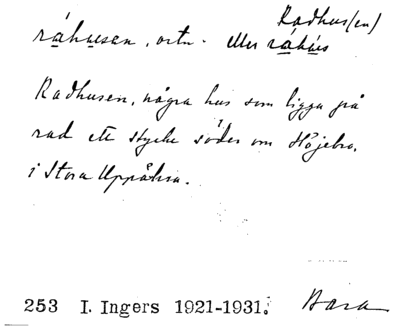 Radhus(en)
ráhusen, ortn. eller ráhús
Radhusen, några hus som ligga på
rad ett stycke söder om Höjebro,
i Stora Uppåkra.
253 I. Ingers 1921-1931. Bara